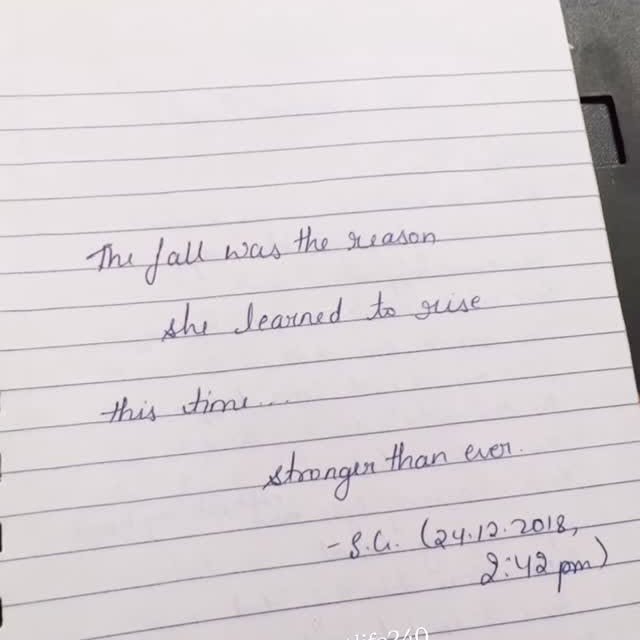 The fall was the reason
she learned to rise
this time...
stronger than ever.
- S.G. (24.12.2018,
2:42 pm)